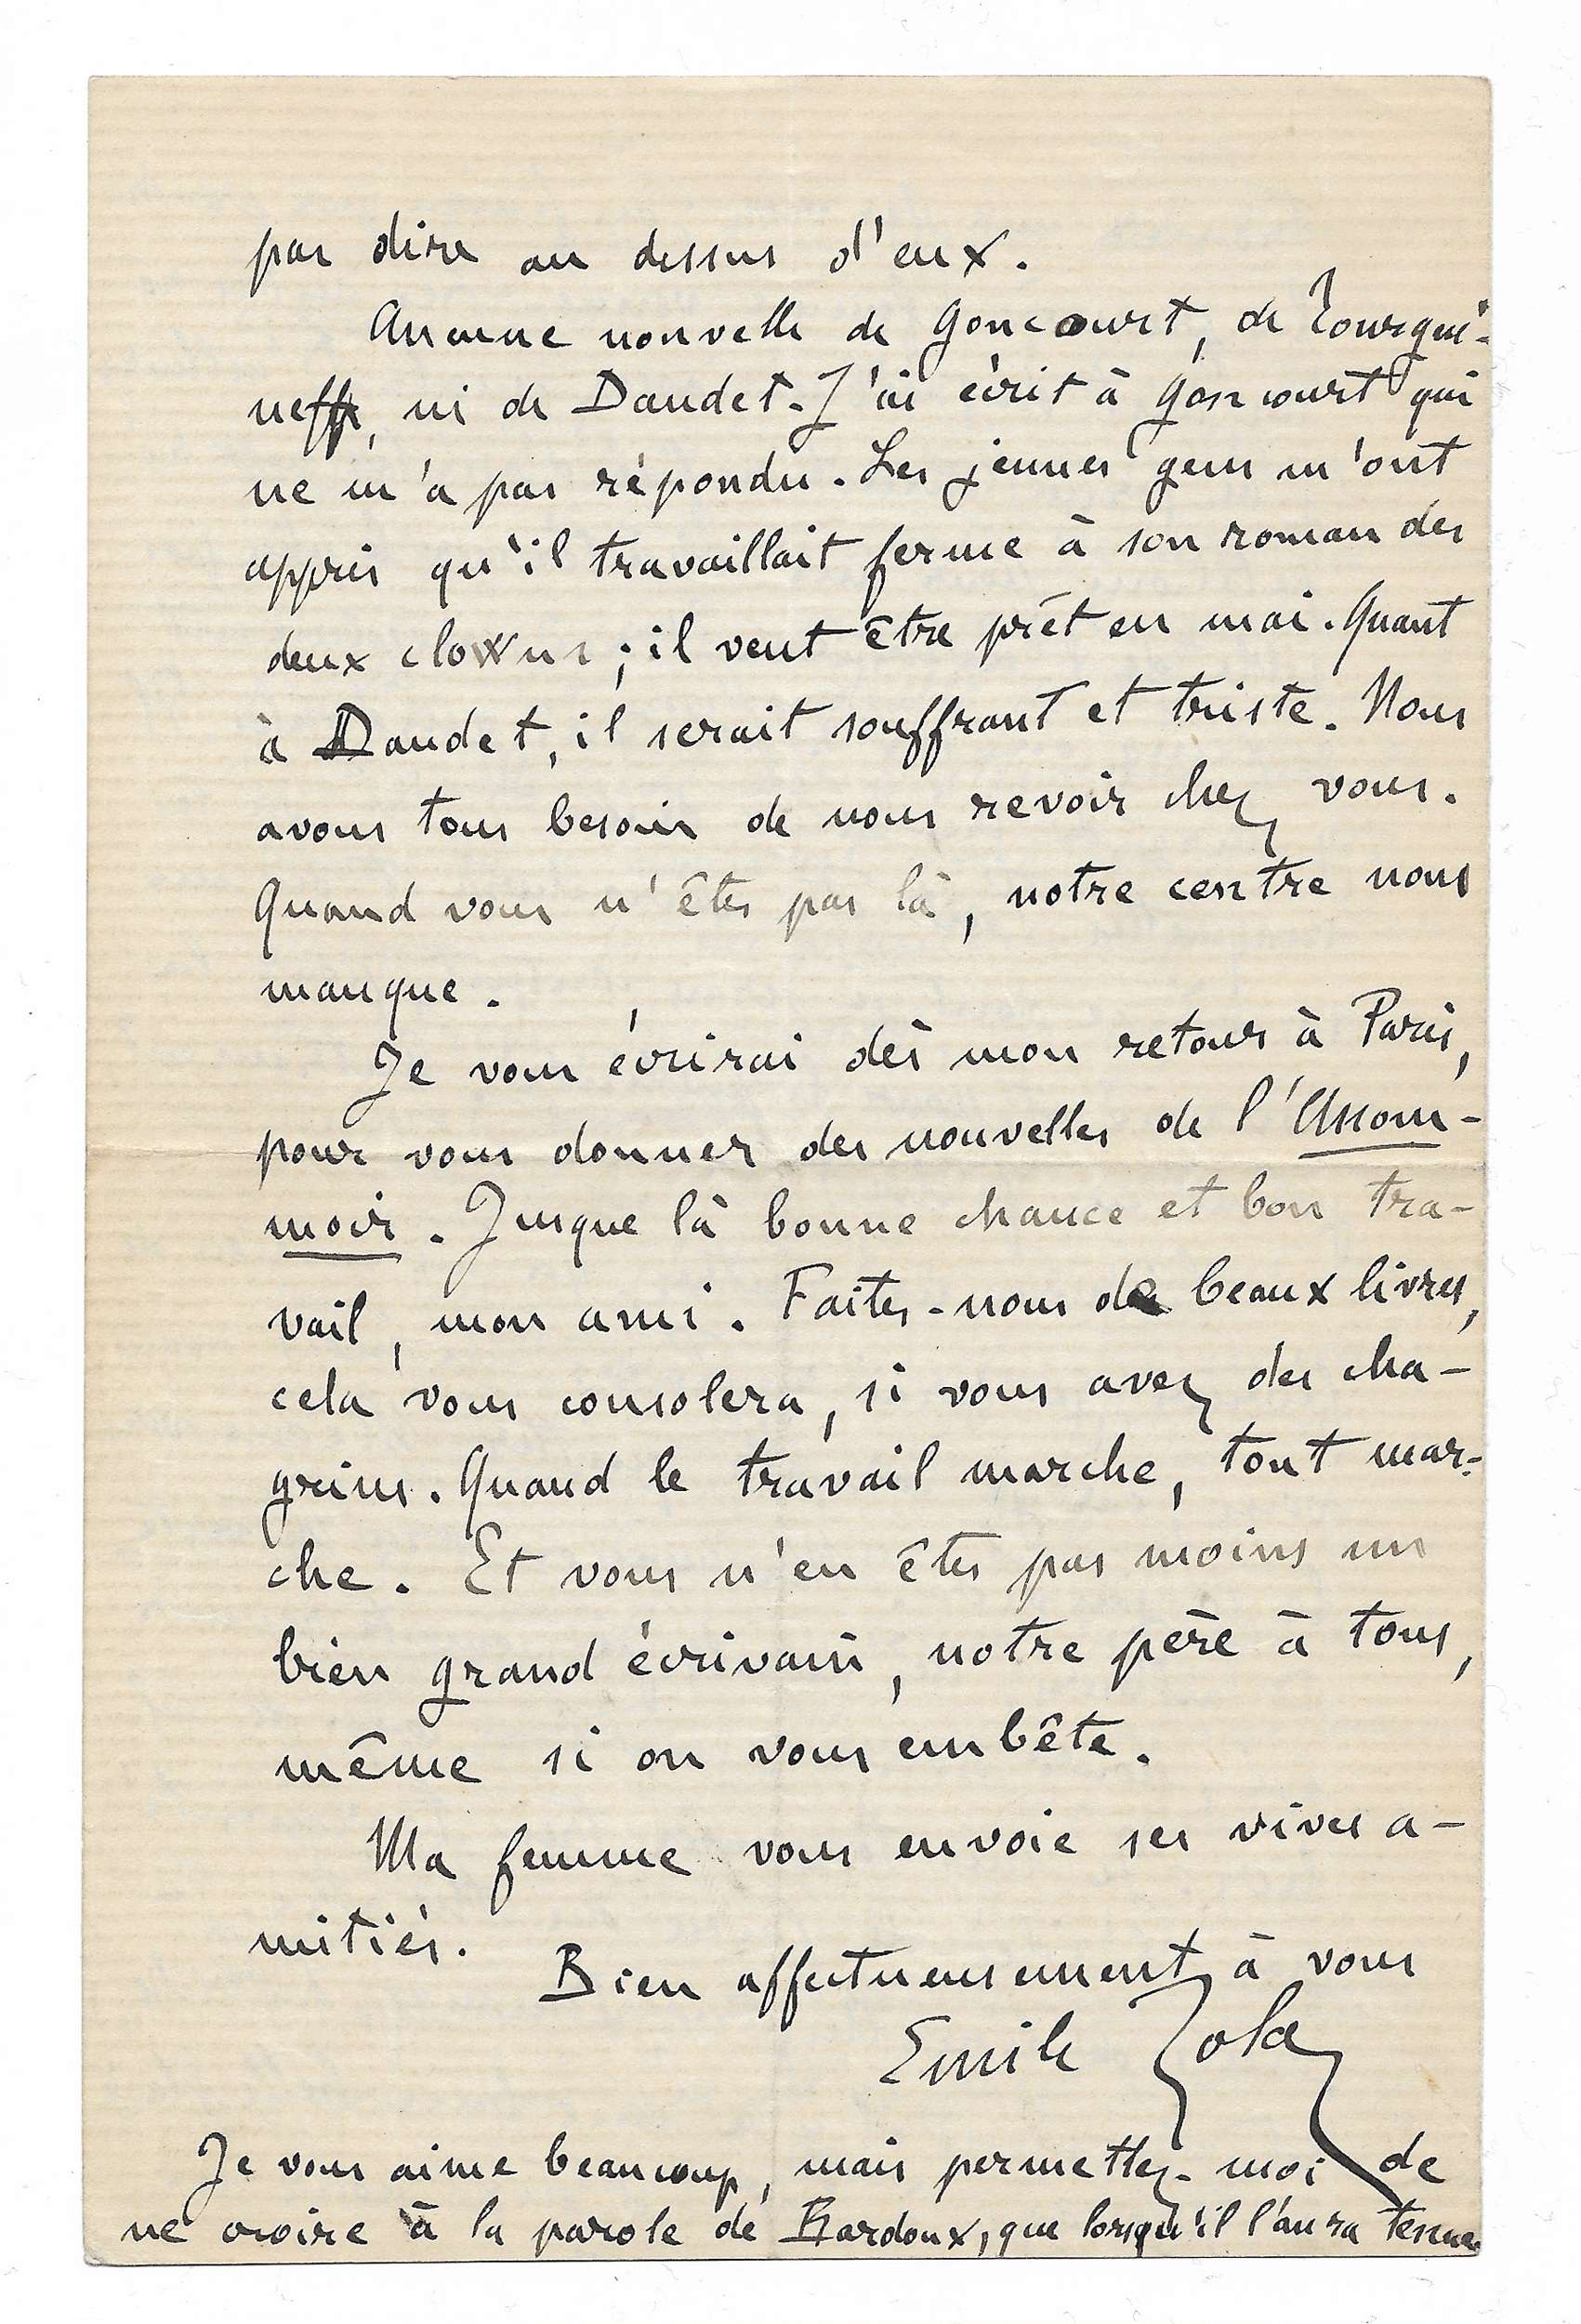 pas dire au dessus d'eux.
Aucune nouvelle de Goncourt, de Tourgué-
neff, ni de Daudet. J'ai écrit à Goncourt qui
ne m'a pas répondu. Les jeunes gens m'ont
appris qu'il travaillait ferme à son roman des
deux clowns ; il veut être prêt en mai. Quant
à Daudet, il serait souffrant et triste. Nous
avons tous besoin de nous revoir chez vous.
Quand vous n'êtes pas là, notre centre nous
manque.
Je vous écrirai dès mon retour à Paris,
pour vous donner des nouvelles de l'Assom-
moir. Jusque là bonne chance et bon tra-
vail, mon ami. Faites-nous de beaux livres,
cela vous consolera, si vous avez des cha-
grins. Quand le travail marche, tout mar-
che. Et vous n'en êtes pas moins un
bien grand écrivain, notre père à tous,
même si on vous embête.
Ma femme vous envoie ses vives a-
mitiés.
Bien affectueusement à vous
Emile Zola
Je vous aime beaucoup, mais permettez-moi de
ne croire à la parole de Bardoux, que lorsqu'il l'aura tenue.